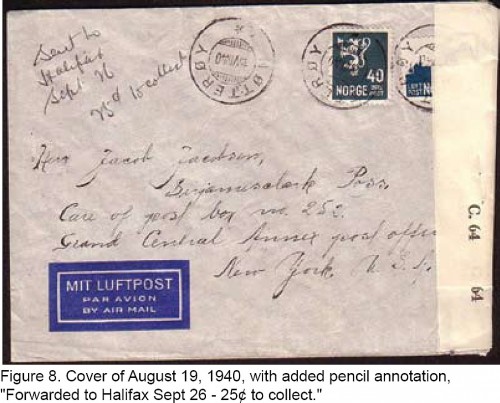 Sent to
Halifax
Sept 26
25¢ to collect
ØTTERØY
VIII 40
ØTTERØY
40
NORGE
LUFT
POST NO
C. 64
64
Herr Jacob Jacobsen,
Care of post box no. 252.
Grand Central Annex post office
New York U.S.
MIT LUFTPOST
PAR AVION
BY AIR MAIL
Figure 8. Cover of August 19, 1940, with added pencil annotation,
"Forwarded to Halifax Sept 26 - 25¢ to collect."